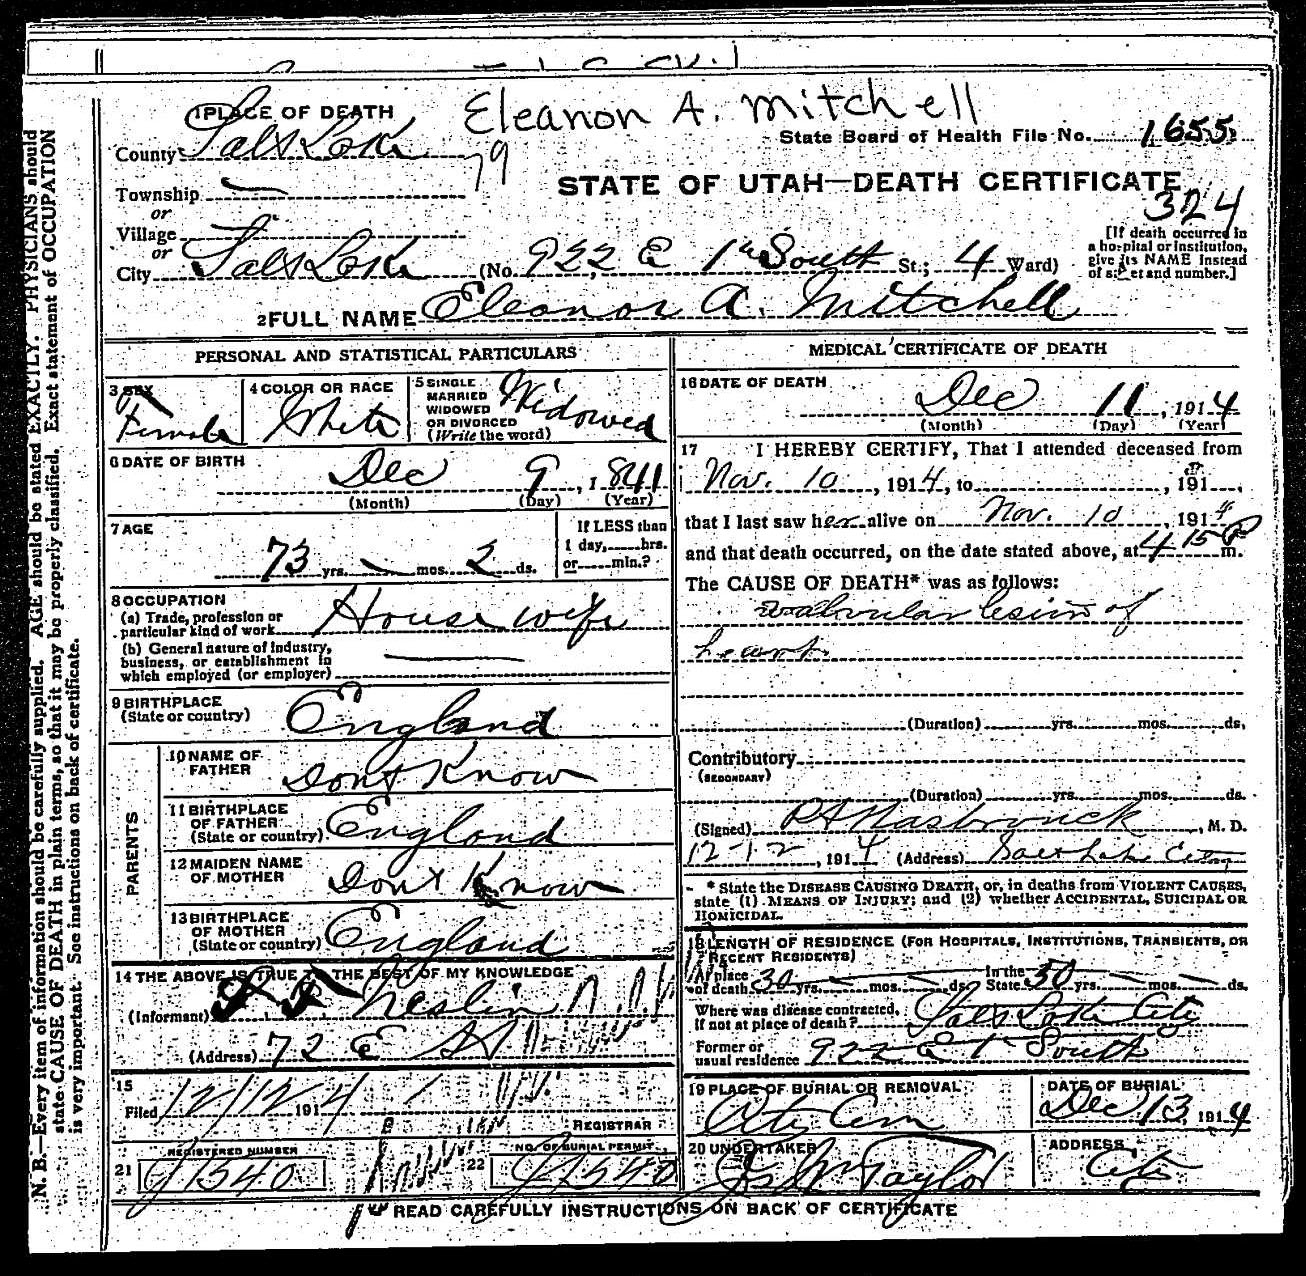 Eleanon A. Mitchell
1 PLACE OF DEATH
State Board of Health File No. 1655
County Salt Lake
79
STATE OF UTAH—DEATH CERTIFICATE
324
Township —
or
Village
or
City Salt Lake (No. 922 E 1st South St.; 4 Ward)
[If death occurred in
a hospital or institution,
give its NAME instead
of street and number.]
2 FULL NAME Eleanor A. Mitchell
PERSONAL AND STATISTICAL PARTICULARS
3 SEX
Female
4 COLOR OR RACE
White
5 SINGLE
MARRIED
WIDOWED
OR DIVORCED
(Write the word)
Widowed
6 DATE OF BIRTH
Dec 9, 1841
(Month) (Day) (Year)
7 AGE
73 yrs. — mos. 2 ds.
If LESS than
1 day, hrs.
or min.?
8 OCCUPATION
(a) Trade, profession or
particular kind of work House wife
(b) General nature of industry,
business, or establishment in
which employed (or employer) —
9 BIRTHPLACE
(State or country) England
PARENTS
10 NAME OF
FATHER Dont Know
11 BIRTHPLACE
OF FATHER
(State or country) England
12 MAIDEN NAME
OF MOTHER Dont Know
13 BIRTHPLACE
OF MOTHER
(State or country) England
14 THE ABOVE IS TRUE TO THE BEST OF MY KNOWLEDGE
(Informant) Neslin
(Address) 72 E St
15
Filed 12/12 1914
REGISTRAR
REGISTERED NUMBER
21 J1540
NO. OF BURIAL PERMIT
22 J1540
MEDICAL CERTIFICATE OF DEATH
16 DATE OF DEATH
Dec 11, 1914
(Month) (Day) (Year)
17 I HEREBY CERTIFY, That I attended deceased from
Nov. 10, 1914, to , 191
that I last saw her alive on Nov. 10 1914
and that death occurred, on the date stated above, at 4 15 P m.
The CAUSE OF DEATH* was as follows:
valvular lesion of
heart
(Duration) yrs. mos. ds.
Contributory
(SECONDARY)
(Duration) yrs. mos. ds.
(Signed) Hasbrouck, M. D.
12-12, 1914 (Address) Salt Lake City
* State the DISEASE CAUSING DEATH, or, in deaths from VIOLENT CAUSES,
state (1) MEANS OF INJURY; and (2) whether ACCIDENTAL, SUICIDAL OR
HOMICIDAL.
18 LENGTH OF RESIDENCE (FOR HOSPITALS, INSTITUTIONS, TRANSIENTS, OR
RECENT RESIDENTS)
At place
of death 30 yrs. — mos. — ds.
In the
State 50 yrs. — mos. — ds.
Where was disease contracted,
if not at place of death? Salt Lake City
Former or
usual residence 922 E 1st South
19 PLACE OF BURIAL OR REMOVAL
City Cem
DATE OF BURIAL
Dec 13, 1914
20 UNDERTAKER
Jos Wm Taylor
ADDRESS
City
READ CAREFULLY INSTRUCTIONS ON BACK OF CERTIFICATE
N. B.—Every item of information should be carefully supplied. AGE should be stated EXACTLY. PHYSICIANS should
state CAUSE OF DEATH in plain terms, so that it may be properly classified. Exact statement of OCCUPATION
is very important. See instructions on back of certificate.